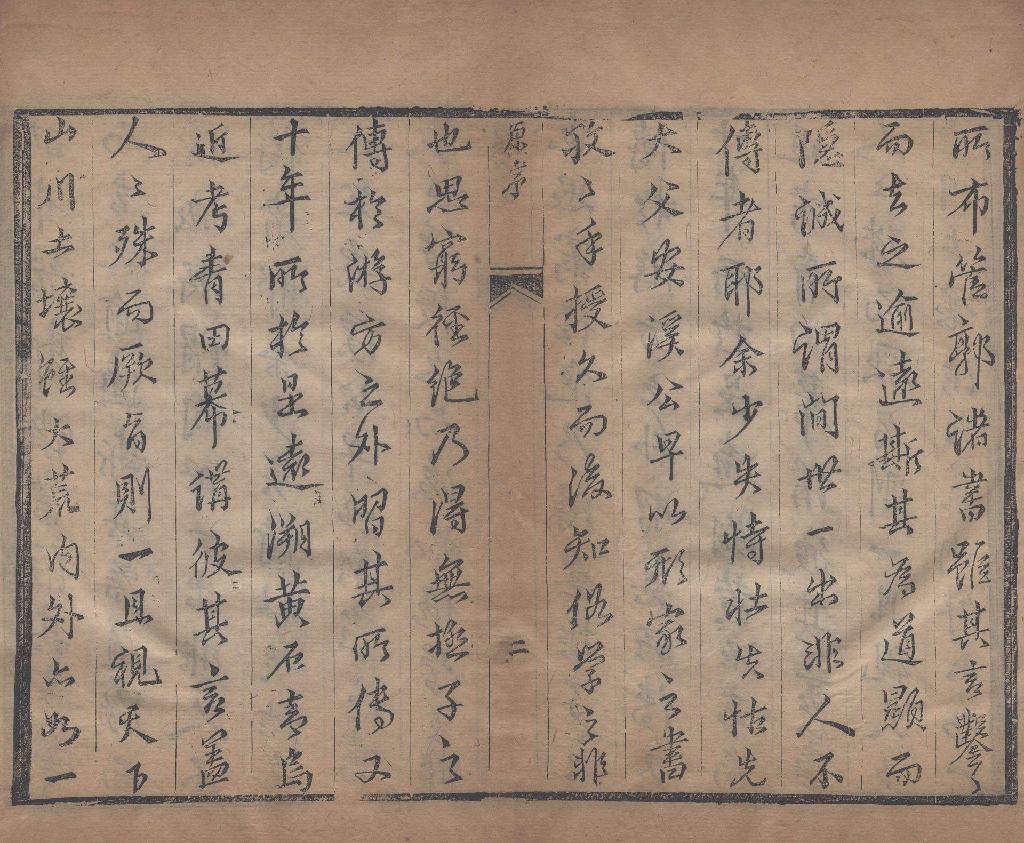 所布管郭諸書雖其言鑿々
而去之逾遠斯其為道顯而
隱誠所謂間世一出非人不
傳者耶余少失恃壯失怙先
大父安溪公早以形家之書
孜々手授久而後知俗學之非
原序
二
也思窮徑絶乃得無極子之
傳於游方之外習其所傳又
十年所於是遠溯黃石青烏
近考青田幕講彼其言蓋
人々殊而厥旨則一且視天下
山川土壤雖大荒內外亦如一